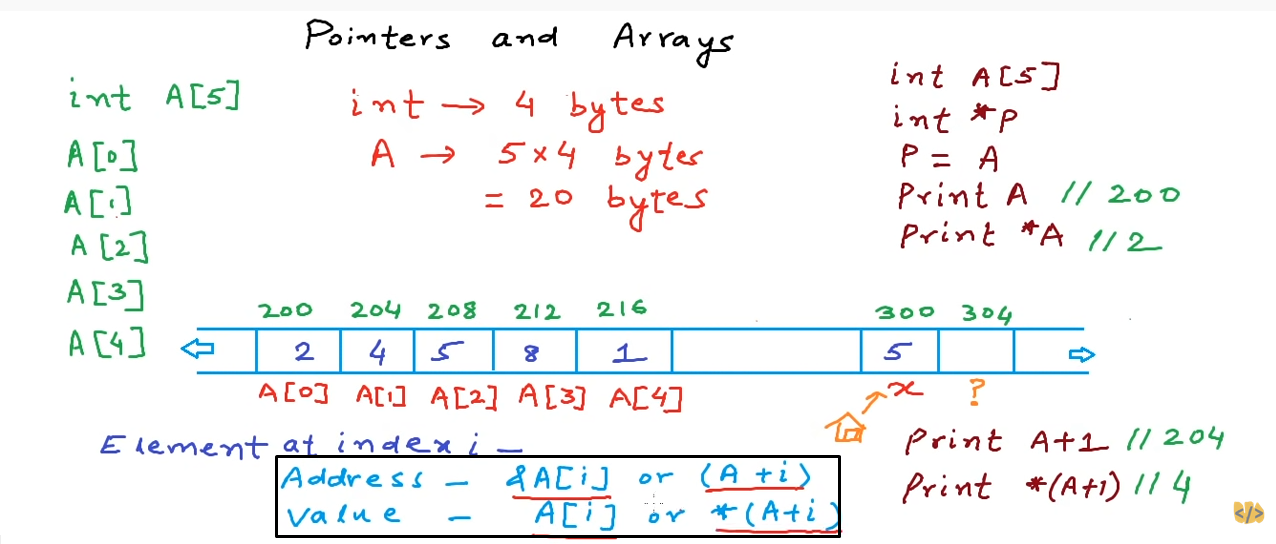 Pointers and Arrays
int A[5]
A[0]
A[1]
A[2]
A[3]
A[4]
int → 4 bytes
A → 5×4 bytes
= 20 bytes
int A[5]
int *P
P = A
Print A // 200
Print *A // 2
200 204 208 212 216 300 304
2 4 5 8 1 5
A[0] A[1] A[2] A[3] A[4] x ?
Element at index i –
Address – &A[i] or (A+i)
Value – A[i] or *(A+i)
Print A+1 // 204
Print *(A+1) // 4
</>